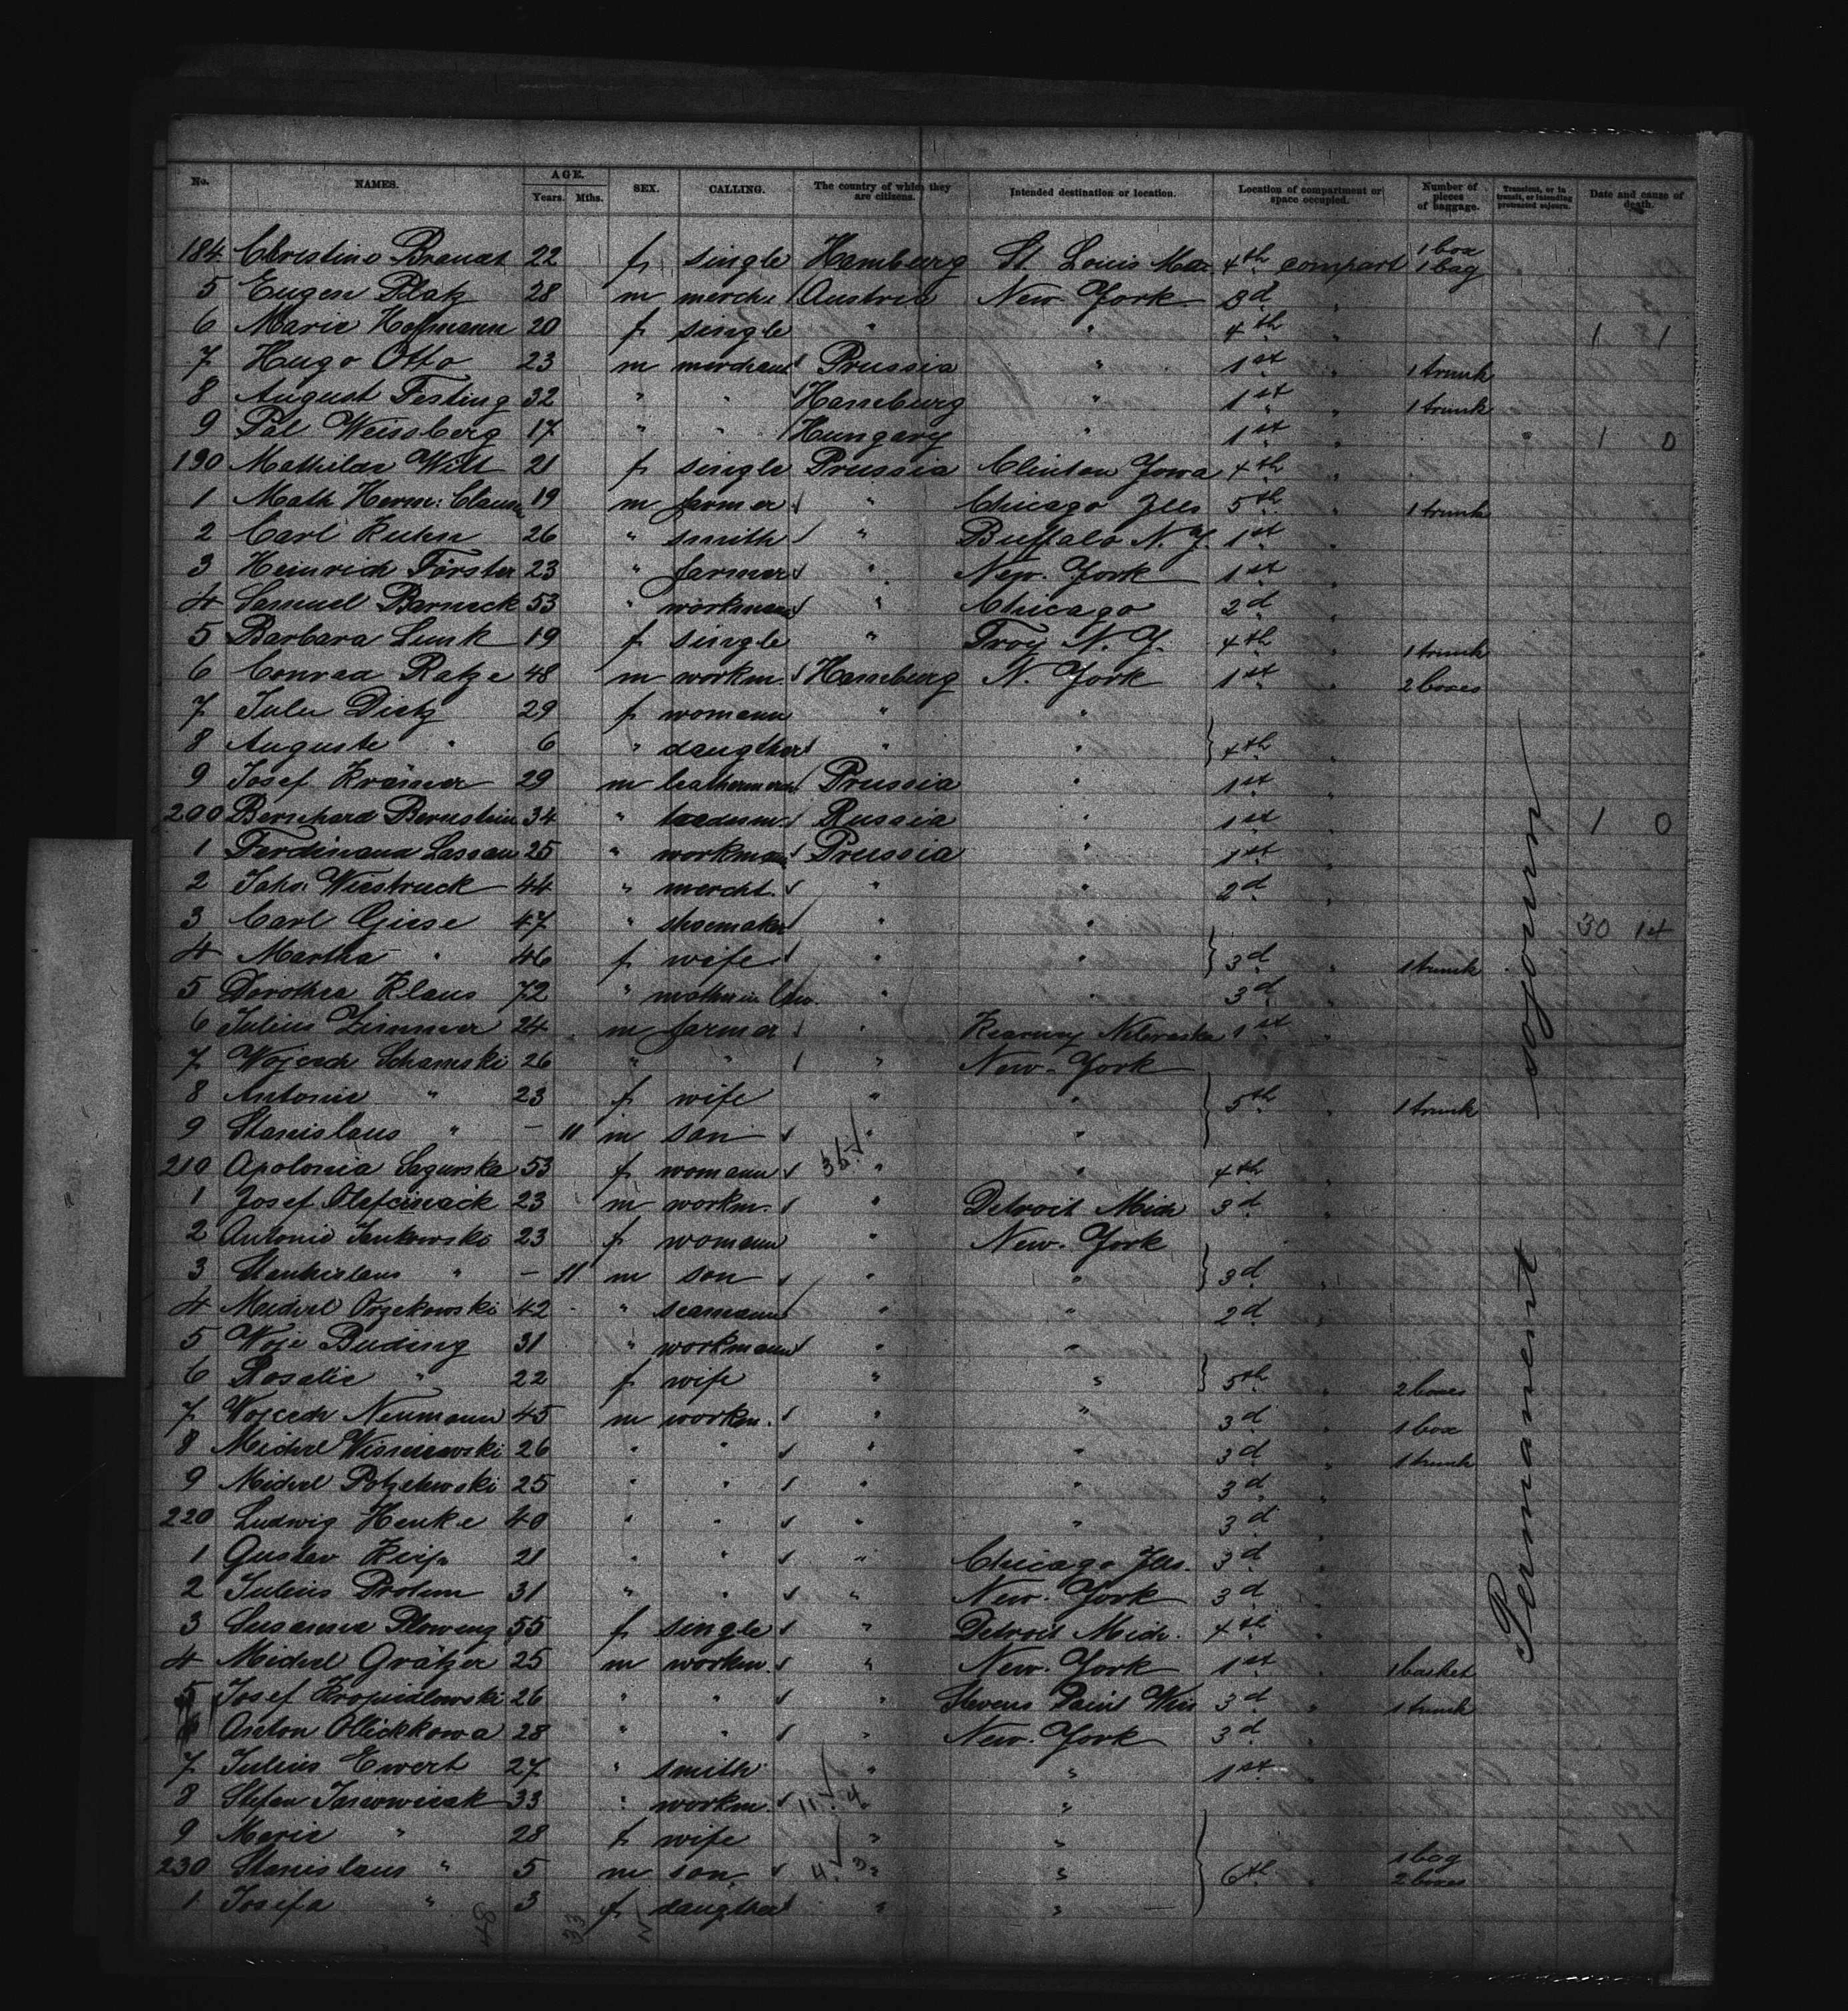 No. NAMES. AGE. Years. Mths. SEX. CALLING. The country of which they are citizens. Intended destination or location. Location of compartment or space occupied. Number of pieces of baggage. Transient, or in transit, or intending protracted sojourn. Date and cause of death.
184 Christine Brandt 22 f single Hamburg St. Louis 4th compart 1 box 1 bag
5 Eugen Platz 28 m merch. Austria New-York 3d "
6 Marie Hofmann 20 f single " " 4th " 1 1
7 Hugo Otto 23 m merchant Prussia " 1st " 1 trunk
8 August Festing 32 " " Hamburg " 1st " 1 trunk
9 Pal Weissberg 17 " " Hungary " 1st " 1 0
190 Mathilde Witt 21 f single Prussia Clinton Iowa 4th "
1 Math Herm: 19 m farmer " Chicago Ills 5th " 1 trunk
2 Carl Kuhn 26 " smith " Buffalo N.Y. 1st "
3 Heinrich Förster 23 " farmer " New-York 1st "
4 Samuel Barneck 53 " workmann " Chicago 2d "
5 Barbara Lunk 19 f single " Troy N.Y. 4th " 1 trunk
6 Conrad Ratze 48 m workm. Hamburg N. York 1st " 2 boxes
7 Julie Dietz 29 f womann " "
8 Auguste " 6 " daugther " " 4th
9 Josef Krämer 29 m leathermerch Prussia " 1st "
200 Bernhard Bernstein 34 " tradesm. Russia " 1st " 1 0
1 Ferdinand Lassau 25 " workmann Prussia " 1st "
2 Joh. Wiestruck 44 " mercht. " " 2d "
3 Carl Giese 47 " shoemaker " " 30 14
4 Martha " 46 f wife " " 3d " 1 trunk
5 Dorothea Klaus 72 " mother in law " " 3d "
6 Julius Zimmer 24 m farmer " Kearney Nebraska 1st "
7 Wojcech Schamski 26 " " " New-York
8 Antonie " 23 f wife " " 5th " 1 trunk
9 Stanislaus " - 11 m son " "
210 Apolonia Sagurska 53 f womann " " 4th "
1 Josef Olefciwack 23 m workm. " Detroit Mich 3d "
2 Antonie Jankowski 23 f womann " New-York
3 Stanislaus " - 11 m son " " 3d "
4 Michael Orzekowski 42 " seamann " " 2d "
5 Woje Buding 31 " workmann " "
6 Rosalie " 22 f wife " " 5th " 2 boxes
7 Wojcech Neumann 45 m workm. " " 3d " 1 box
8 Michael Wisniewski 26 " " " " 3d " 1 trunk
9 Michael 25 " " " " 3d "
220 Ludwig Henke 40 " " " " 3d "
1 Gustav 21 " " " Chicago Ills. 3d "
2 Julius 31 " " " New-York 3d "
3 Susanna 55 f single " Detroit Mich. 4th "
4 Michael Grätzer 25 m workm. " New-York 1st " 1 basket
5 Josef Kropidlowski 26 " " " Stevens Point Wis 3d " 1 trunk
6 Anton Ollickkowa 28 " " " New-York 3d "
7 Julius Ewert 27 " smith " " 1st "
8 Stefan 33 " workm. 11. 4. " "
9 Marie " 28 f wife " "
230 Stanislaus " 5 m son 4. 3 " " 6th " 1 bag 2 boxes
1 Josefa " 3 f daugther " "
48 33
Permanent sojourn